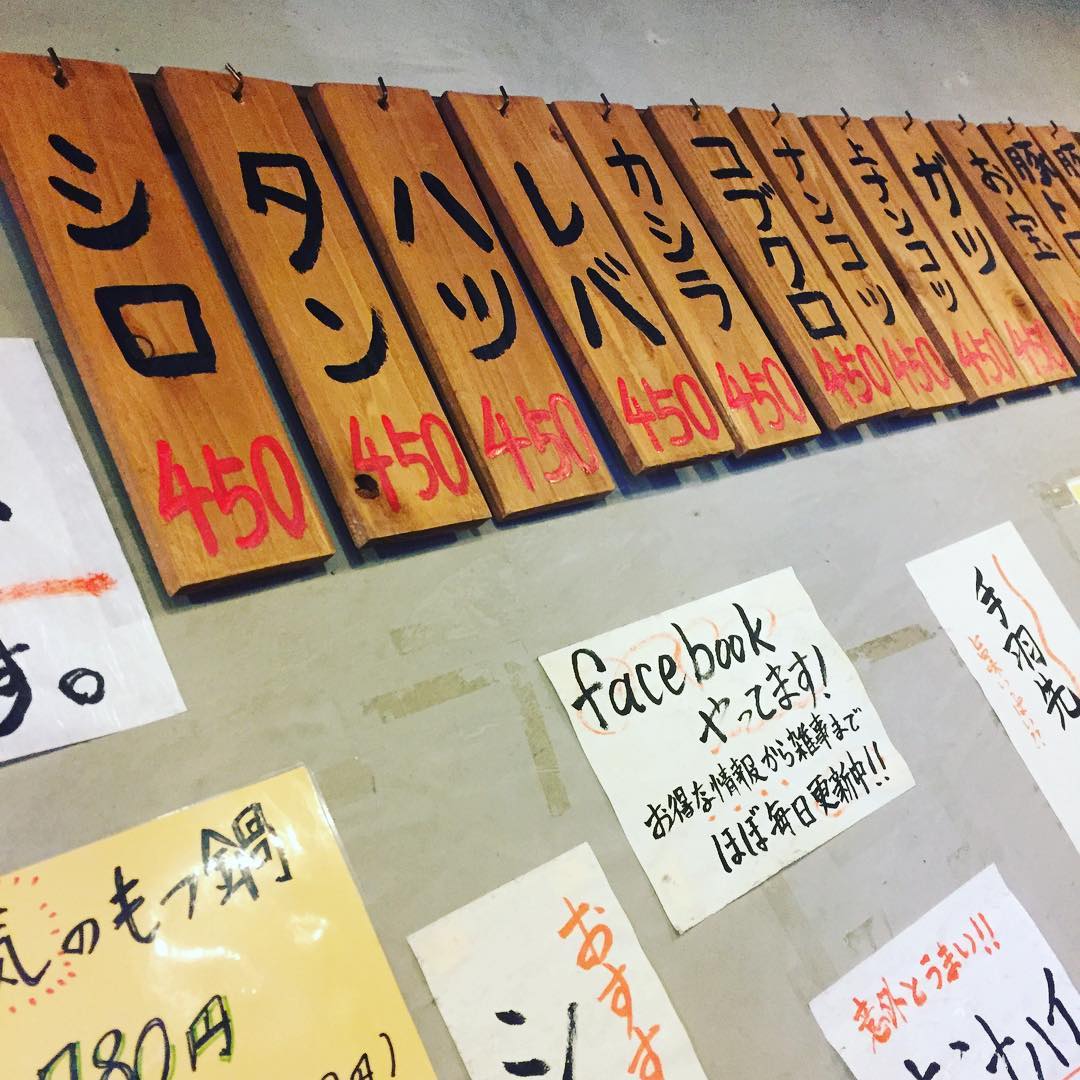 シロ
450
タン
450
ハツ
450
レバ
450
カシラ
450
コブクロ
450
ナンコツ
450
上ナンコツ
450
ガツ
450
お宝
450
豚ト
豚
す。
facebook
やってます!
お得な情報から雑事まで
ほぼ毎日更新中!!
手羽先
気のもつ鍋
780円
円)
おすす
意外とうまい!!